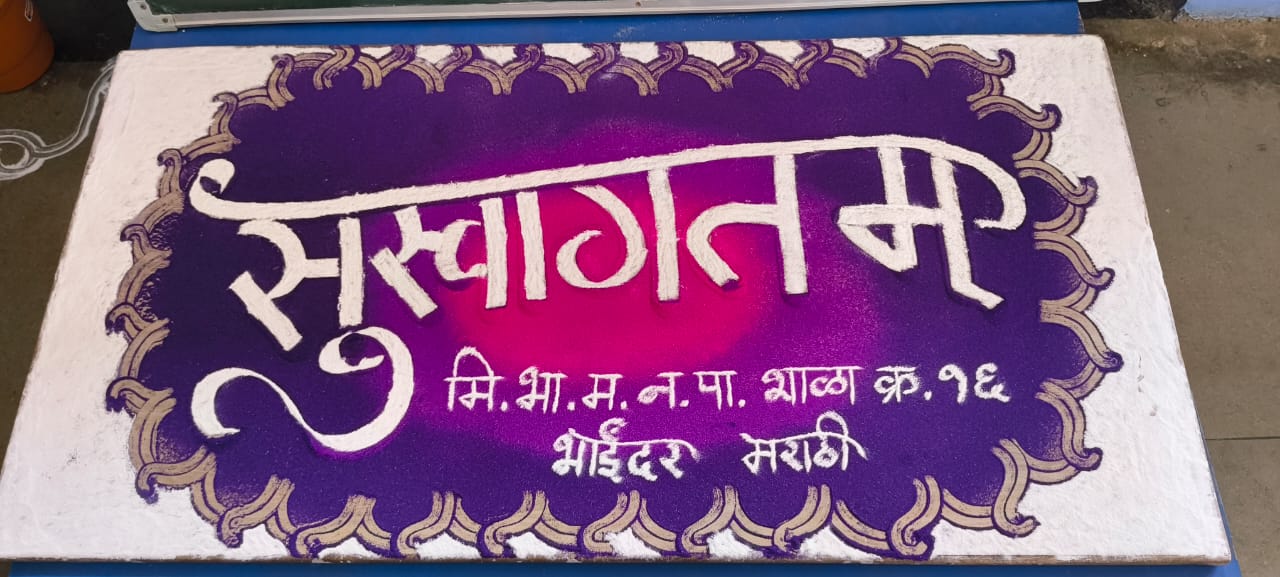 सुस्वागतम्
मि.भा.म.न.पा. शाळा क्र.१६
भाईंदर मराठी